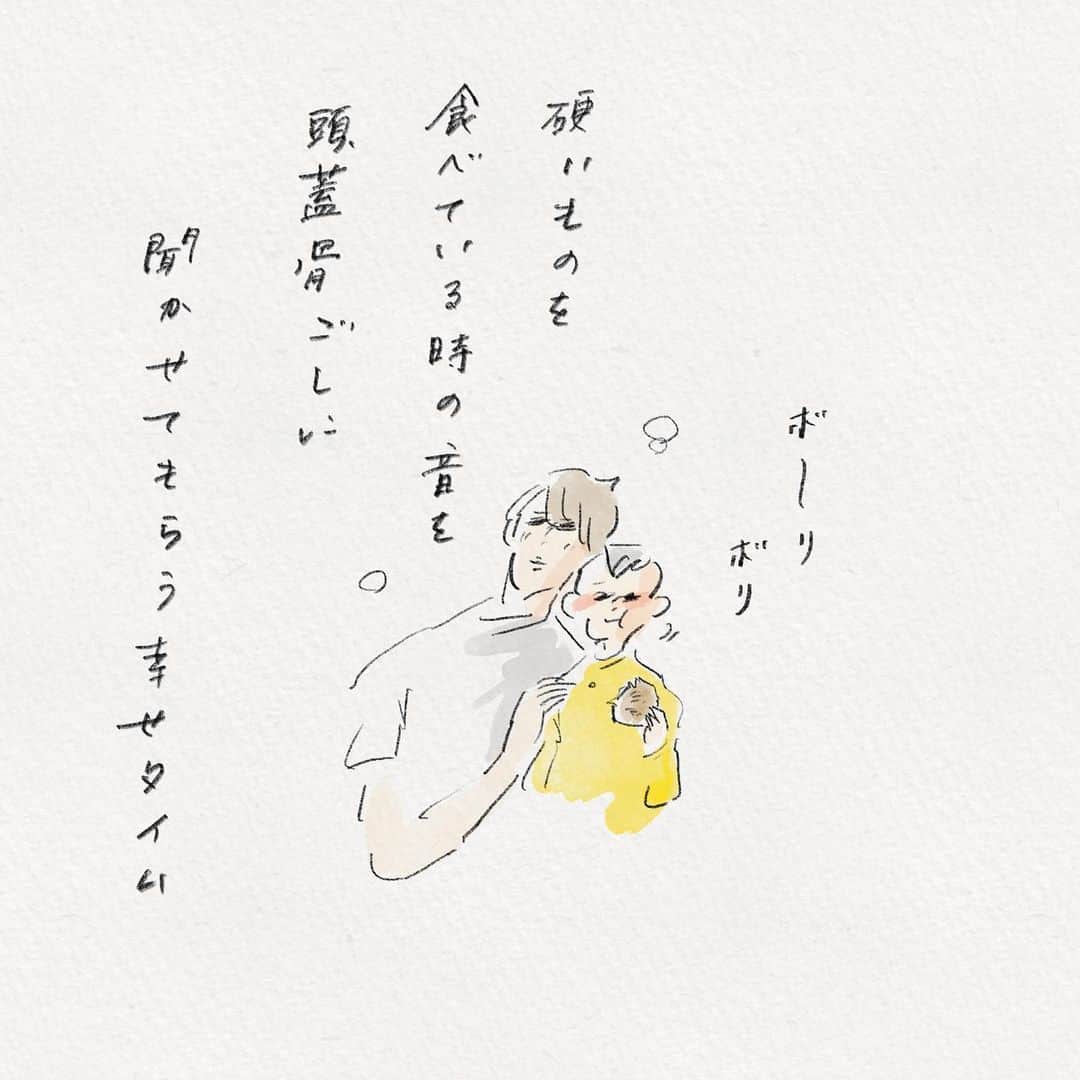 硬いものを
食べている時の音を
頭蓋骨ごしに
聞かせてもらう幸せタイム
ボーリ
ボリ